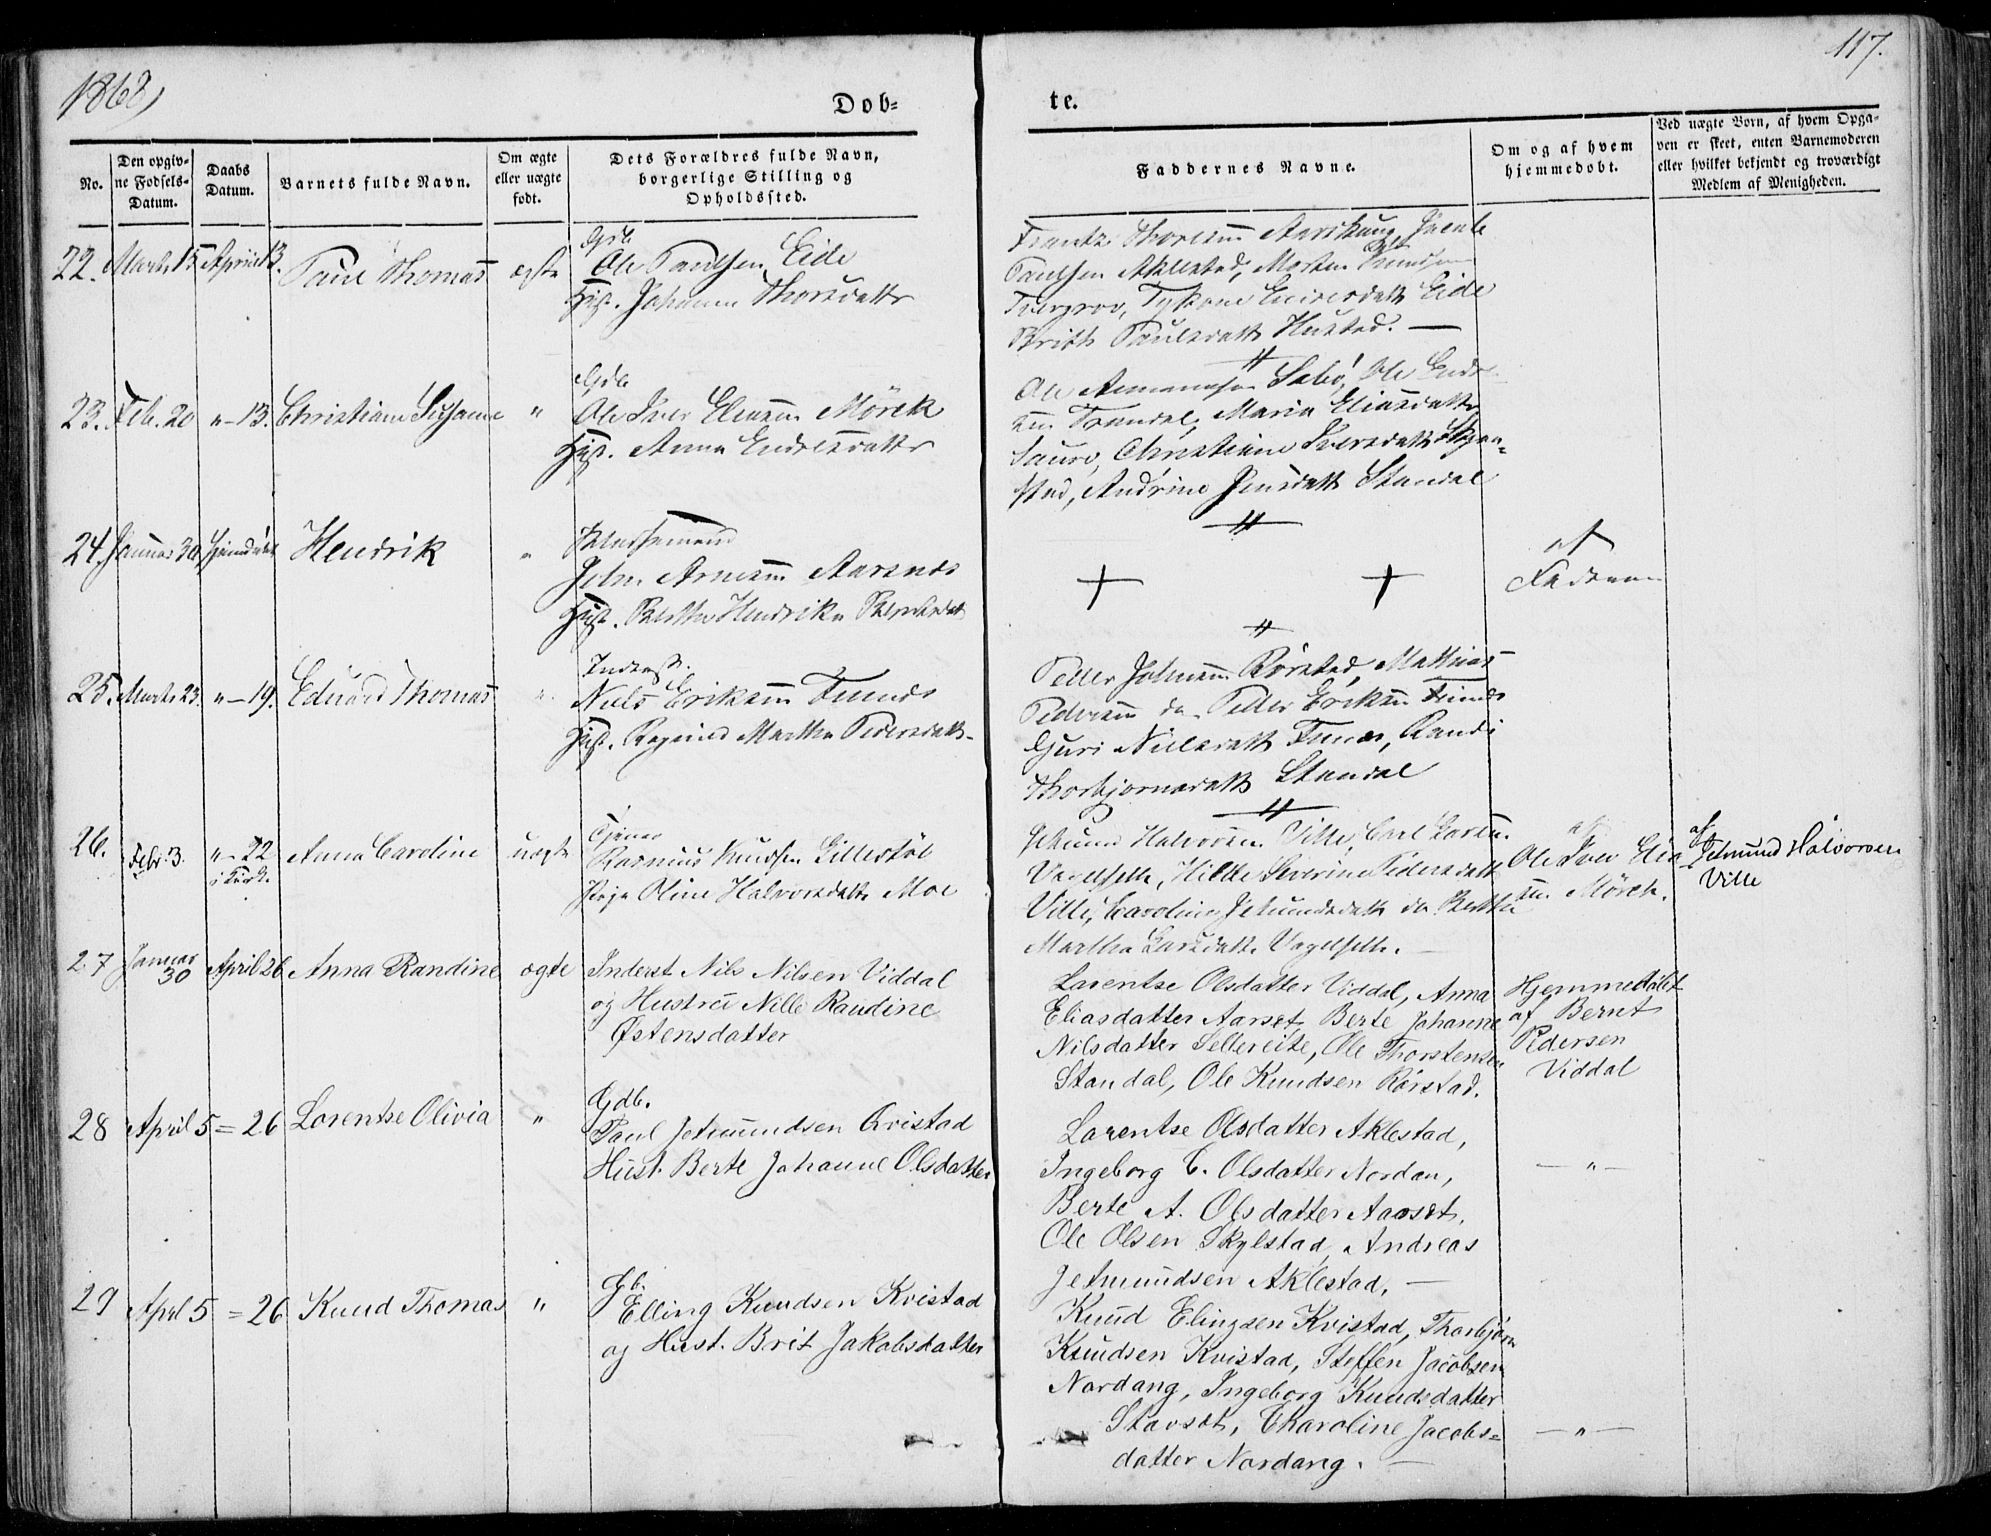 1868
117.
Døb-
te.
No.
Den opgiv-
ne Fødsels-
Datum.
Daabs
Datum.
Barnets fulde Navn.
Om ægte
eller uægte
født.
Dets Forældres fulde Navn,
borgerlige Stilling og
Opholdssted.
Faddernes Navne.
Om og af hvem
hjemmedøbt.
Ved uægte Børn, af hvem Opga-
ven er skeet, enten Barnemoderen
eller hvilket bekjendt og troværdigt
Medlem af Menigheden.
22. Marts 15 April 13. Paul Thomas ægte
Gdb
Ole Paulsen Eide
Hust. Johanne Thorsdatter
Paulsen Aklestad, Morten
Eide
Brith Paulsdatt Hustad. —
23. Feb. 20 " – 13. Christiane Susanne "
Gdb
Ole Iver Eliassen Mörck
Hust. Anna Endresdatter
Ole Sæbö, Ole Endre-
sen Trandal, Maria Eliasdatter
Christiane Iversdatt Skjaa-
stad, Andrine Jensdatt Standal
24. Januar 30 Hendrik "
John Arnesen Aarsnes
Hust. Berthe Hendrikke
+ +
af
Faderen
25. Marts 23. " – 19. Eduard Thomas "
Inderst.
Niels Eriksen
Hust. Ragnild Marthe Pedersdatt.
Peder Johnsen Rörstad, Mathias
Pedersen do Peder Eriksen
Guri Nielsdatt Randi
Thorbjörnsdatt Standal
26. Febr. 3. " – 22 Anna Caroline uægte
i Kirk.
Rasmus Knudsen Lillestöl
Pige Oline Halvorsdatter Moe
Jetmund Halvorsen Ville, Carl Larsen
Vagelsetle, Hilde Severine Pedersdatt
Ville, Caroline Jetmundsdatt do Berthe
Martha Larsdatt. Vagelsetle. —
af
Ole Iver Elia-
sen Mörch.
af
Jetmund Halvorsen
Ville
27 Januar
30 April 26 Anna Randine ægte
Inderst Nils Nilsen Viddal
og Hustru Nille Randine
Østensdatter
Larentse Olsdatter Viddal, Anna
Eliasdatter Aarset, Berte Johanne
Nilsdatter Sellereite, Ole Thorstensen
Standal, Ole Knudsen Rörstad.
Hjemmedöbt
af Bernt
Pedersen
Viddal
28 April 5 = 26 Lorentse Olivia "
Gdb.
Paul Jetmundsen Qvistad
Hust. Berte Johanne Olsdatter
Larentse Olsdatter Aklestad,
Ingeborg C. Olsdatter Nordan,
Berte A. Olsdatter Aarset,
Ole Olsen Skylstad, Andreas
Jetmundsen Aklestad. —
— " —
29 April 5 = 26 Knud Thomas "
Gb.
Elling Knudsen Kvistad
og Hust. Brit Jakobsdatter
Knud Elingsen Kvistad, Thorbjörn
Knudsen Kvistad, Steffen Jacobsen
Nordang, Ingeborg Knudsdatter
Stavset, Charoline Jacobs=
datter Nordang. —
— " —